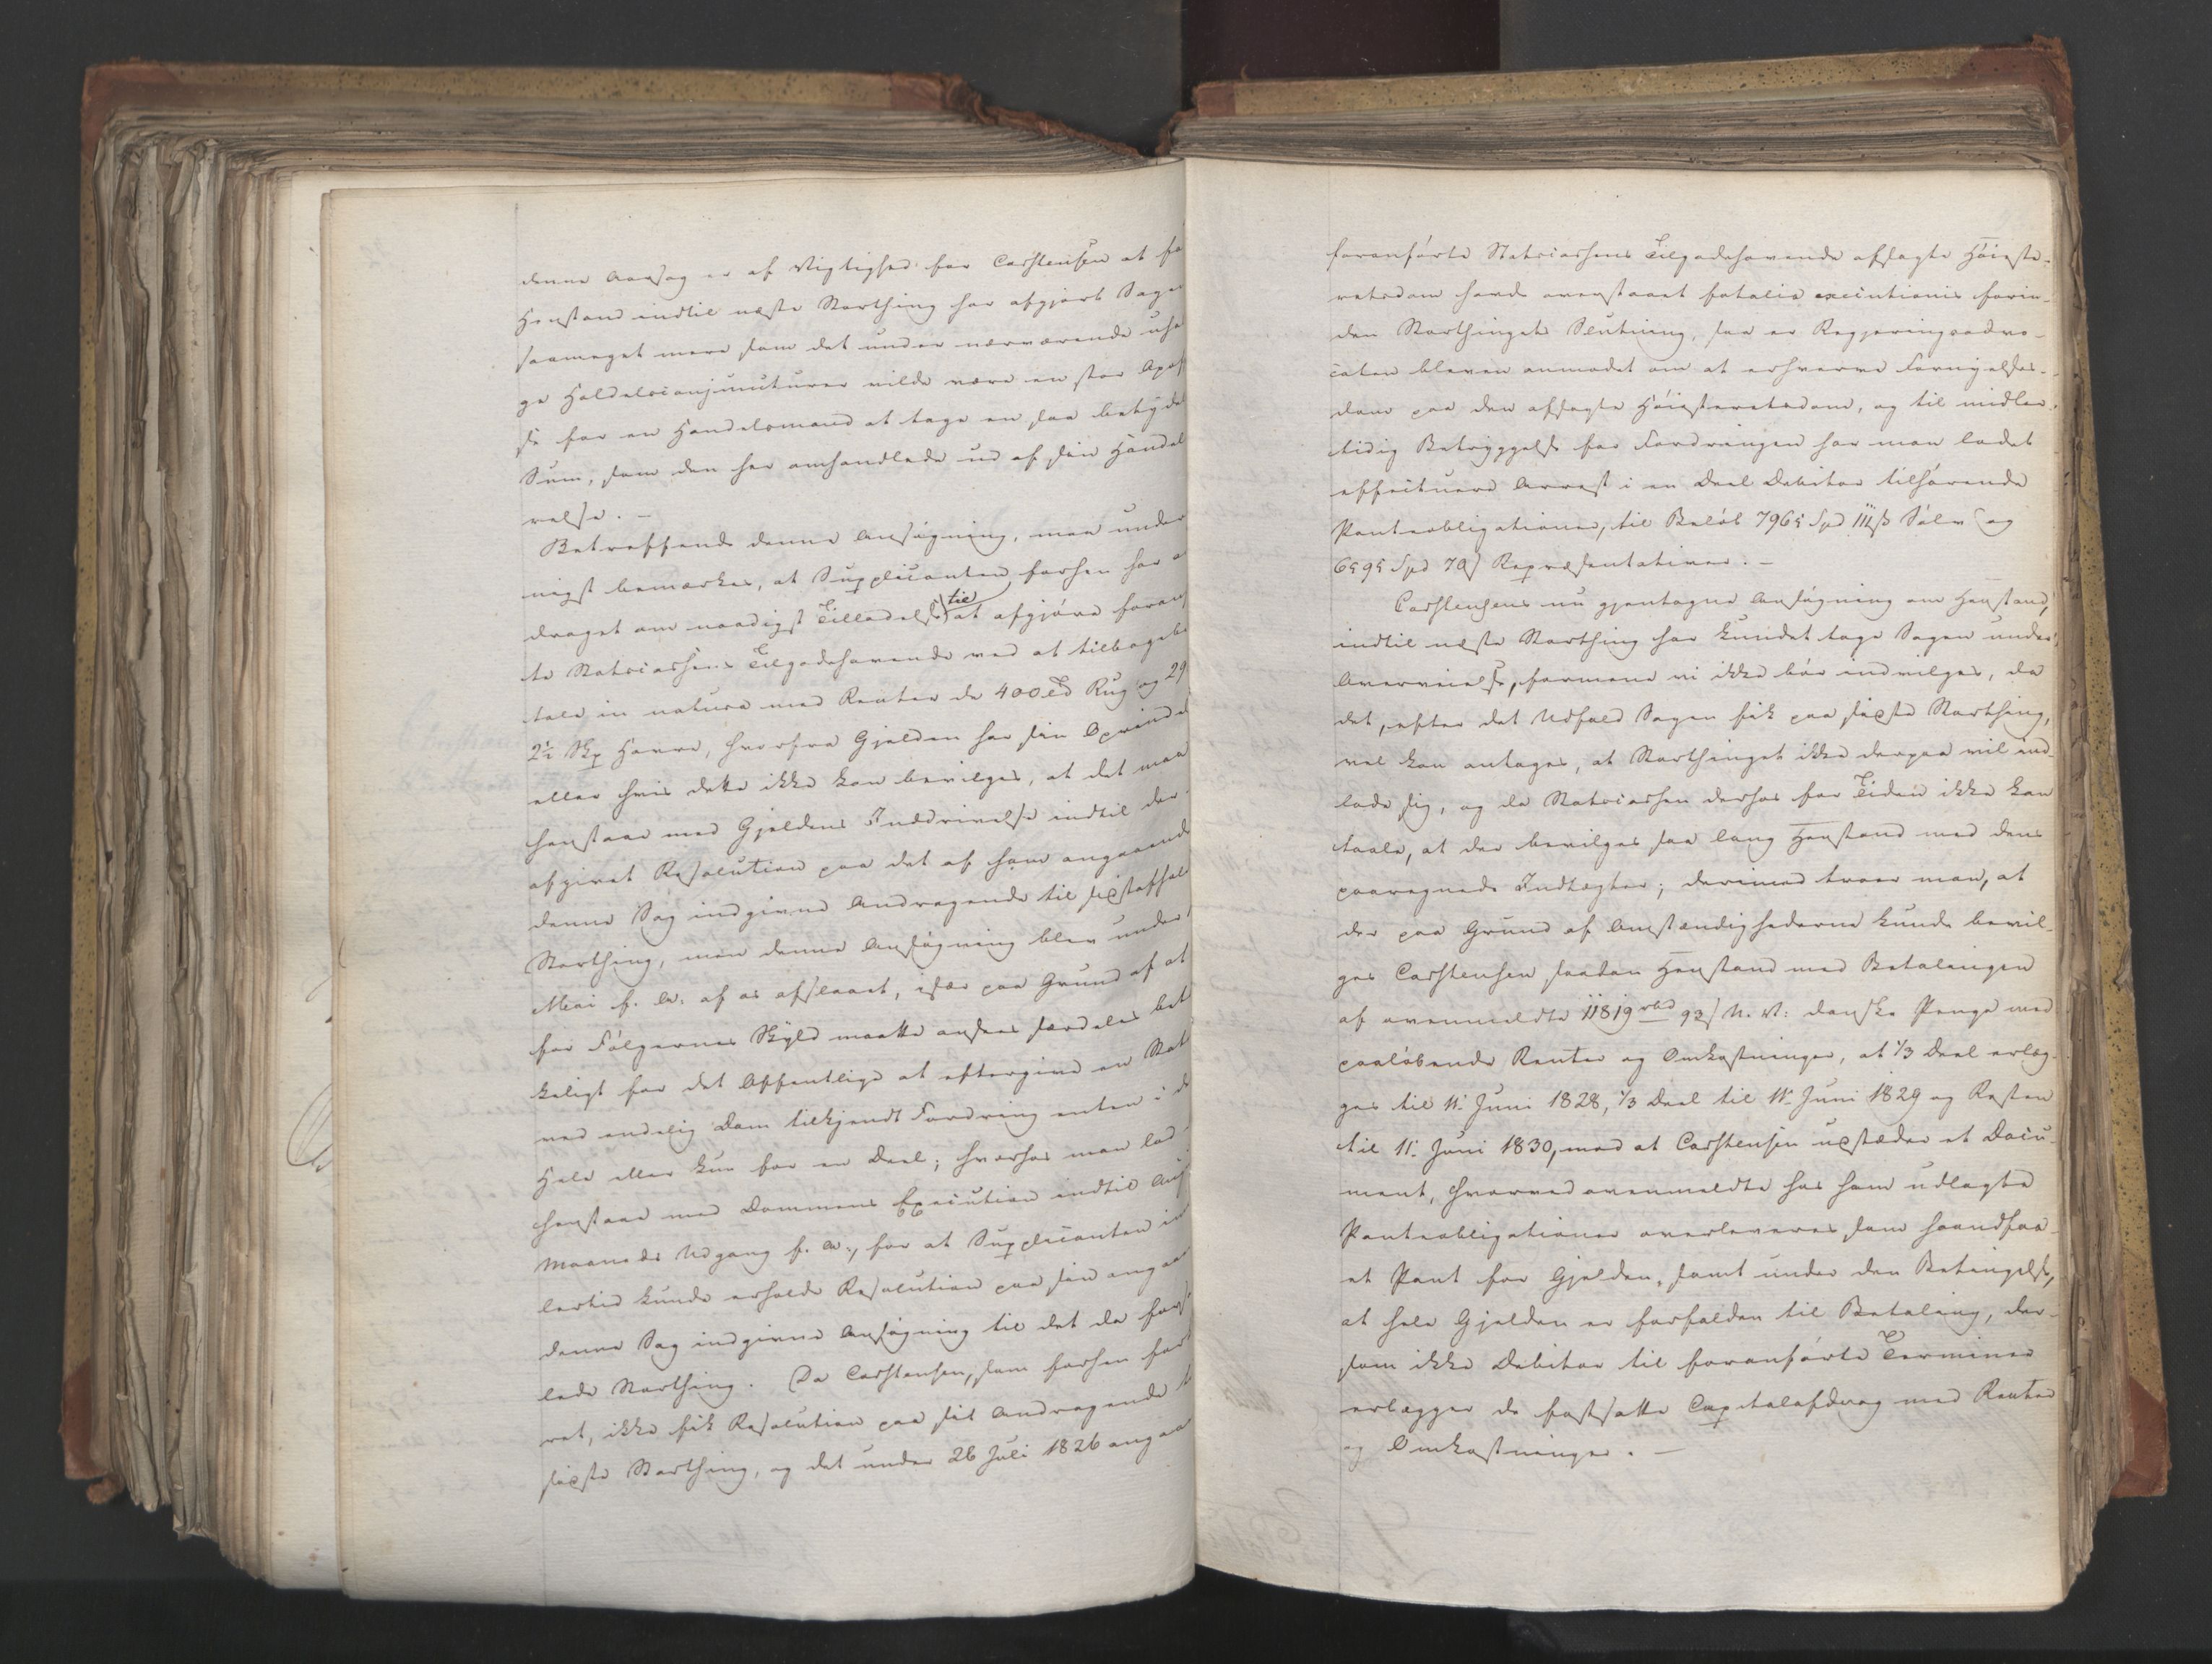 denne Aarsag er af Vigtighed for Carstensen at fa
Henstand indtil næste Storthing har afgjort Sage
saameget mere som det under nærværende uhe
ge Haldelsconjuncturer vilde være en stor Opof
se for en Handelsmand at tage en saa betyde
Sum, som den her omhandlede ud af sin Handel
relse. —
Betreffende denne Ansøgning, maa under
nigst bemærkes, at Supplicanten forhen har a
draget om naadigst Tilladelse til at afgjøre foran
te Statscassens Tilgodehavende ved at tilbagebe
tale in natura med Renter de 400 Td Rug og 29
2½ Skp Havre, hvorfra Gjelden har sin Oprinde
eller hvis dette ikke kan bevilges, at det maa
henstaae med Gjeldens Inddrivelse indtil der
afgivet Resolution paa det af ham angaaende
denne Sag indgivne Andragende til sidstafhol
Storthing, men denne Ansøgning blev under
Mai f. A. af os afslaaet, især paa Grund af at
for Følgernes Skyld maatte ansees særdeles bet
keligt for det Offentlige at eftergive en Stat
ved endelig Dom tilkjendt Fordring enten i de
Hele eller kun for en Deel; hvorhos man lod
henstaae med Dommens Execution indtil Aug
Maaneds Udgang f. A., for at Supplicanten im
lertid kunde erholde Resolution paa sin angaae
denne Sag indgivne Ansøgning til det da fors
lede Storthing. Da Carstensen, som forhen før
ret, ikke fik Resolution paa sit Andragende t
sidste Storthing, og det under 26 Juli 1826 angaae
foranførte Statscassens Tilgodehavende afsagte Høieste-
retsdom havde overstaaet fatalia executionis forin-
den Storthingets Slutning, saa er Regjeringsadvo-
caten bleven anmodet om at erhverve Fornyelses-
dom paa den afsagte Høiesteretsdom, og til midler-
tidig Betryggelse for Fordringen har man ladet
effectuere Arrest i en Deel Debitor tilhørende
Panteobligationer, til Beløb 7965 Spd Sølv og
6595 Spd 70ß Repræsentativer. —
Carstensens nu gjentagne Ansøgning om Henstand,
indtil næste Storthing har kundet tage Sagen under
Overveielse, formene vi ikke bør indvilges, da
det, efter det Udfald Sagen fik paa sidste Storthing,
vel kan antages, at Storthinget ikke derpaa vil ind-
lade sig, og da Statscassen derhos for Tiden ikke kan
taale, at der bevilges saa lang Henstand med dens
paaregnede Indtægter; derimod troer man, at
der paa Grund af Omstændighederne kunde bevil-
ges Carstensen saadan Henstand med Betalingen
af ovenmeldte 11819 rbd 93ß N. V. danske Penge med
paaløbende Renter og Omkostninger, at 1/3 Deel erlæg-
ges til 11. Juni 1828, 1/3 Deel til 11. Juni 1829 og Resten
til 11. Juni 1830, mod at Carstensen udstæder et Docu-
ment, hvorved ovenmeldte hos ham udlagte
Panteobligationer overleveres som haandfaa-
et Pant for Gjelden, samt under den Betingelse,
at hele Gjelden er forfalden til Betaling, der-
som ikke Debitor til foranførte Terminer
erlægger de fastsatte Capitalafdrag med Renter
og Omkostninger. —